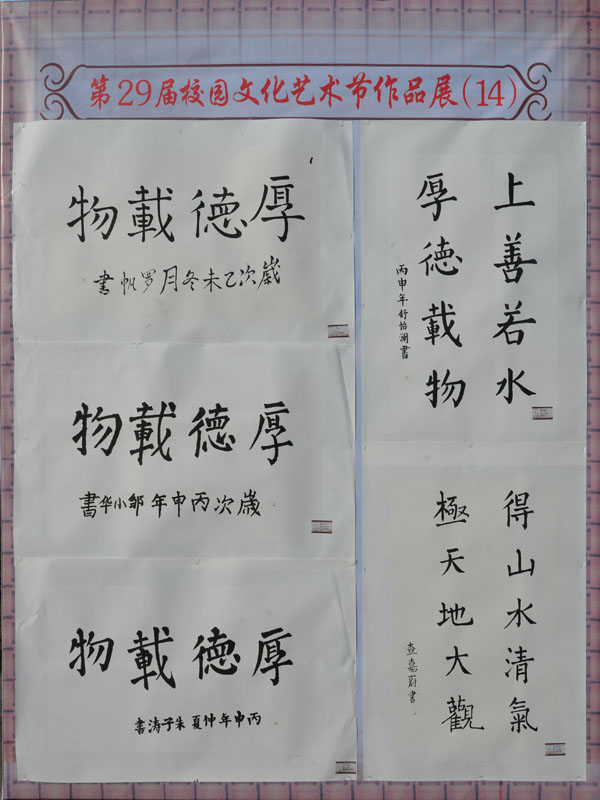 第29届校园文化艺术节作品展(14)
厚德載物
歲次乙未冬月罗帆書
厚德載物
歲次丙申年邹小华書
厚德載物
丙申年仲夏朱子涛書
上善若水
厚德載物
丙申年舒怡澜書
得山水清氣
極天地大觀
查嘉蔚書